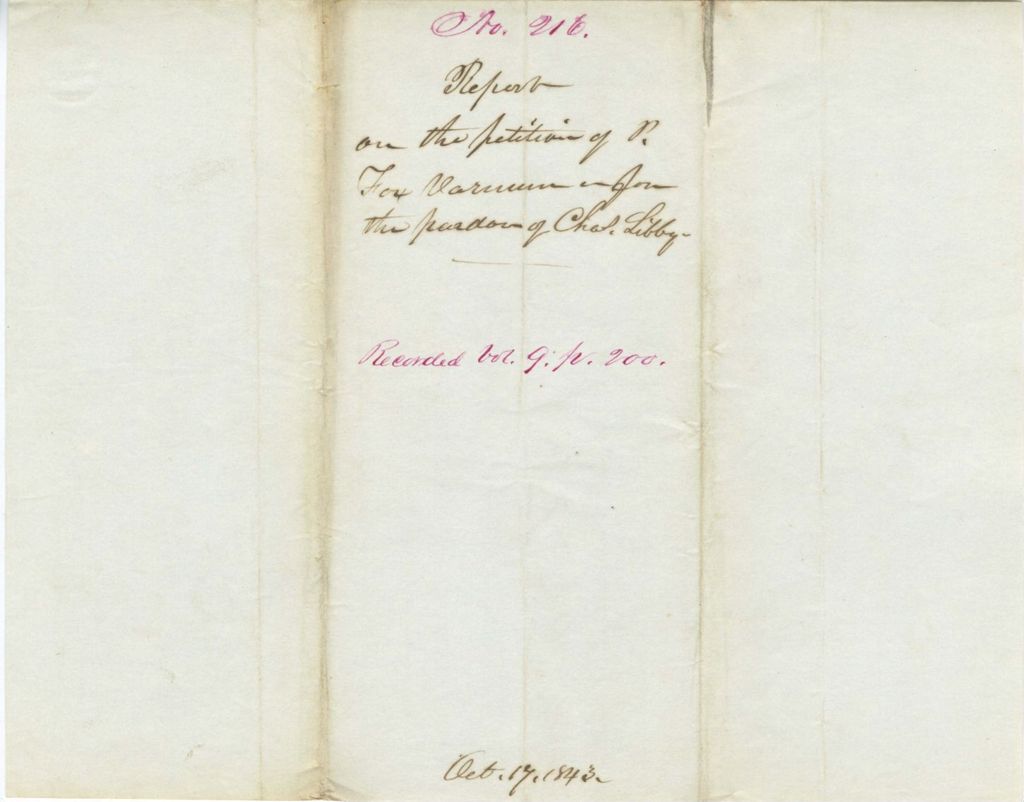 No. 216.
Report
on the petition of P.
Fox Varnum for
the pardon of Chas. Libby-
Recorded Vol. 9. p. 200.
Oct. 17. 1843.